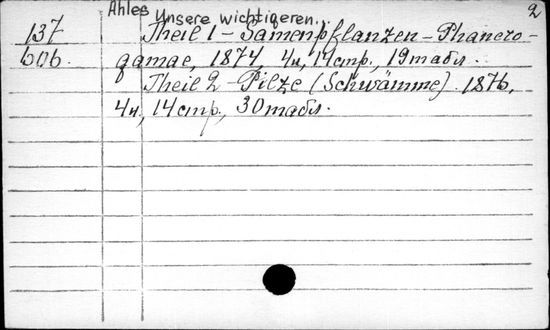 Ahles Unsere wichtigeren..
2
137 Theil 1 - Samenpflanzen - Phanero-
606. gamae, 1874, 4н, 14стр., 19табл.
Theil 2 - Pilze (Schwämme). 1876,
4н, 14стр., 30табл.